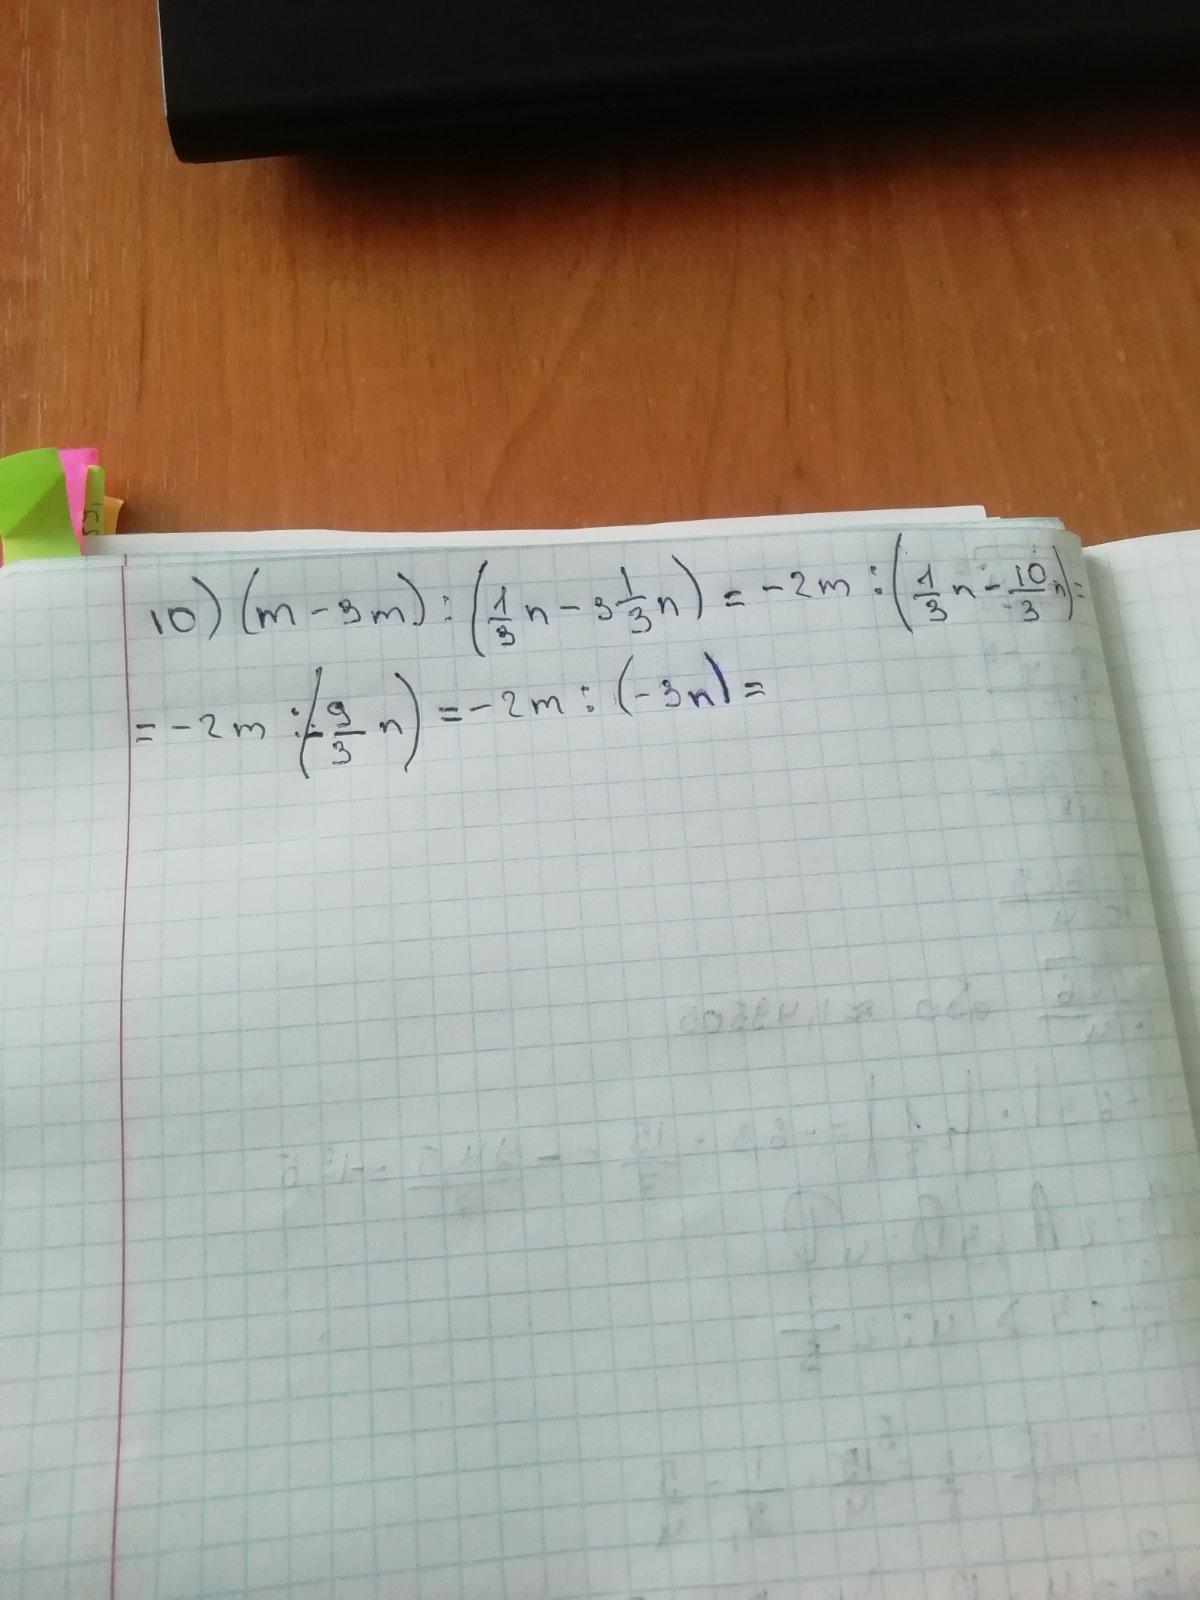 10) (m - 3m) : (1/3 n - 3 1/3 n) = -2m : (1/3 n - 10/3 n) =
= -2m : (-9/3 n) = -2m : (-3n) =